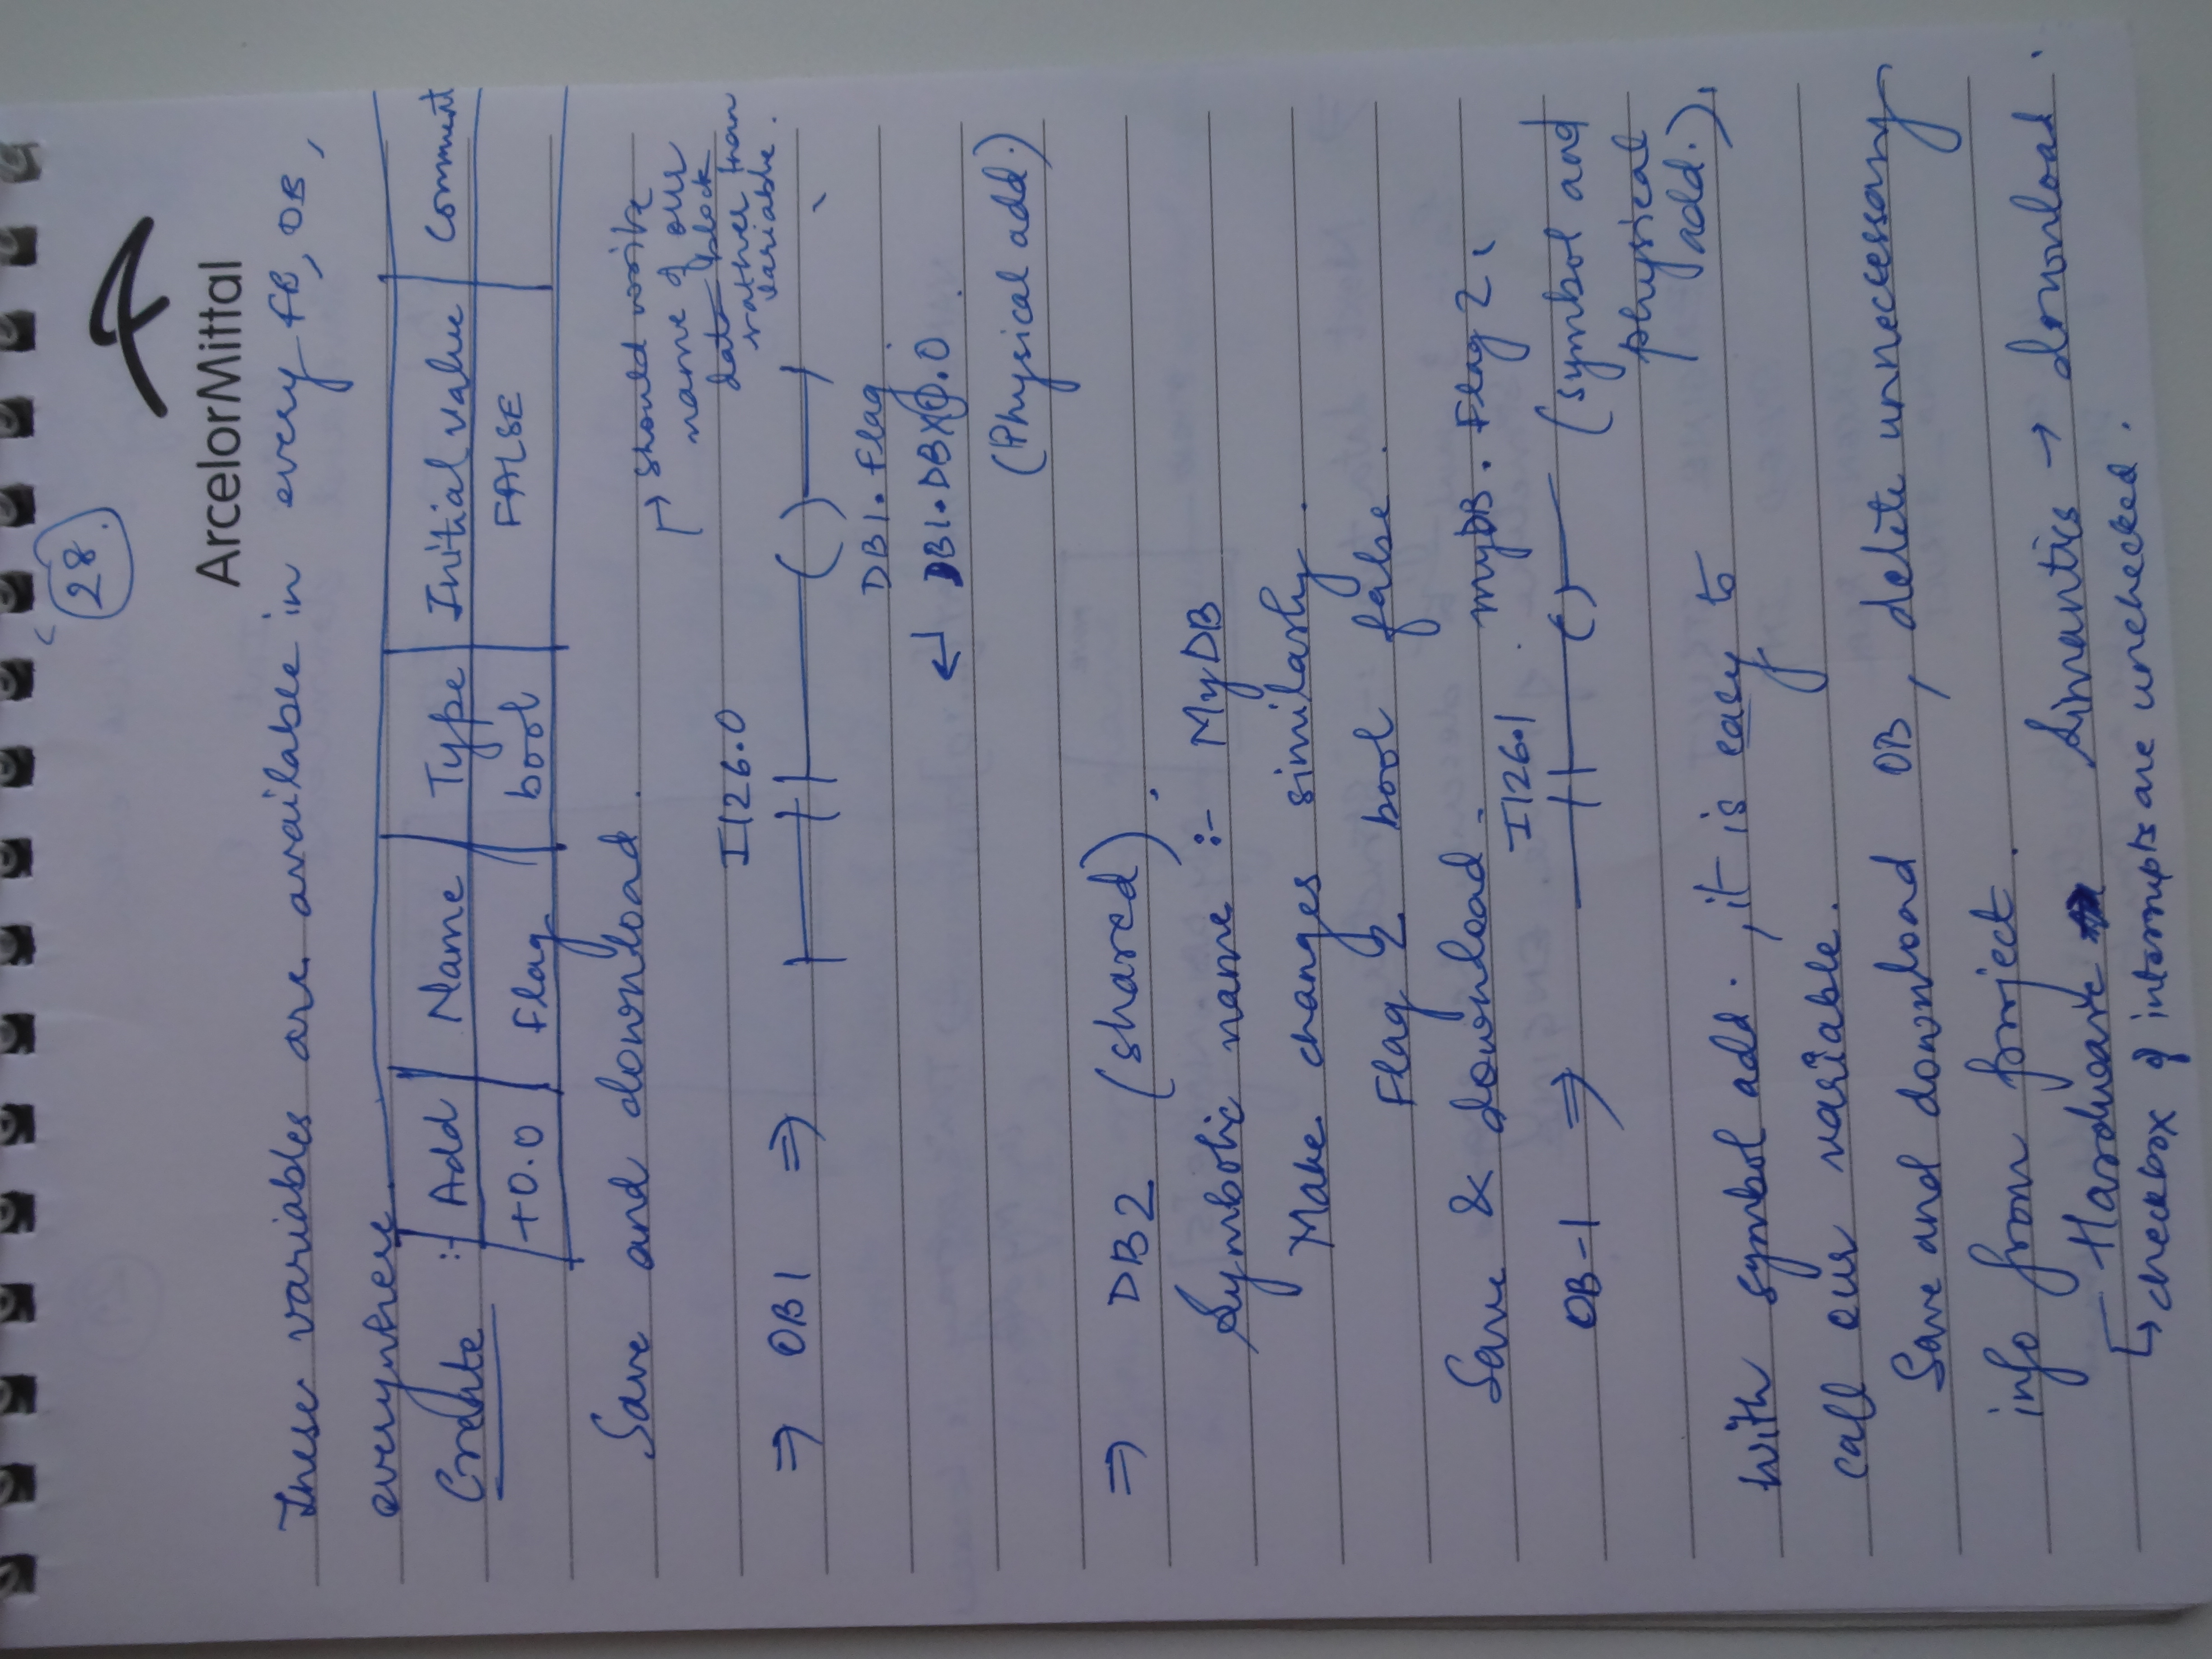 28.
ArcelorMittal
These variables are available in every FB, OB,
everywhere.
Create :- Add Name Type Initial value Comment
+0.0 Flag bool FALSE
Save and download.
→ should write
name of our
data block
rather than
variable.
⇒ OB1 ⇒ I126.0
DB1.Flag
↵ DB1.DBX0.0
(Physical add.)
⇒ DB2 (shared).
Symbolic name :- MyDB
Make changes similarly.
Flag 2 bool false.
Save & download.
OB-1 ⇒ I126.1 myDB.Flag 2
(symbol and
physical
add.)
With symbol add., it is easy to
call our variable.
Save and download OB, delete unnecessary
info from project.
- Hardware Simantics → download.
↳ checkbox of interrupts are unchecked.